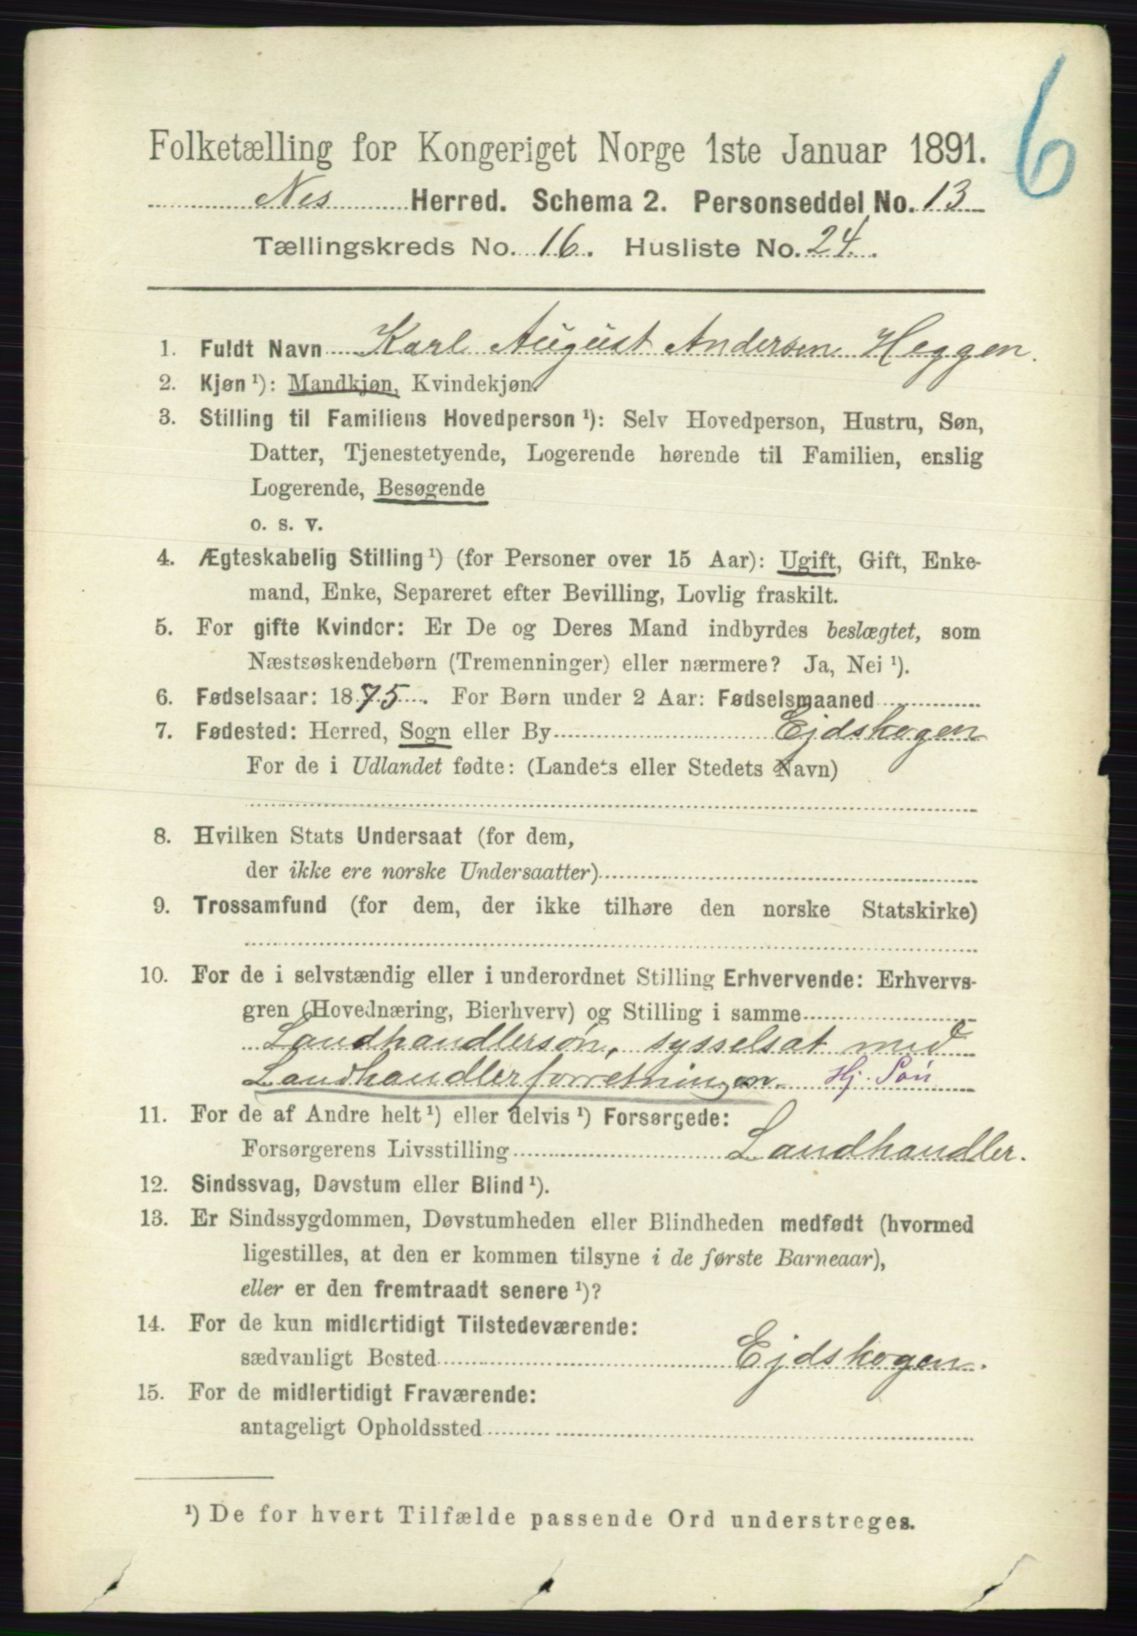 6
Folketælling for Kongeriget Norge 1ste Januar 1891.
Nes Herred. Schema 2. Personseddel No. 13
Tællingskreds No. 16. Husliste No. 24.
1. Fuldt Navn Karl August Andersen Heggen.
2. Kjøn ¹): Mandkjøn, Kvindekjøn.
3. Stilling til Familiens Hovedperson ¹): Selv Hovedperson, Hustru, Søn,
Datter, Tjenestetyende, Logerende hørende til Familien, enslig
Logerende, Besøgende
o. s. v.
4. Ægteskabelig Stilling ¹) (for Personer over 15 Aar): Ugift, Gift, Enke-
mand, Enke, Separeret efter Bevilling, Lovlig fraskilt.
5. For gifte Kvinder: Er De og Deres Mand indbyrdes beslægtet, som
Næstsøskendebørn (Tremenninger) eller nærmere? Ja, Nei ¹).
6. Fødselsaar: 1875. For Børn under 2 Aar: Fødselsmaaned
7. Fødested: Herred, Sogn eller By Ejdskogen
For de i Udlandet fødte: (Landets eller Stedets Navn)
8. Hvilken Stats Undersaat (for dem,
der ikke ere norske Undersaatter)
9. Trossamfund (for dem, der ikke tilhøre den norske Statskirke)
10. For de i selvstændig eller i underordnet Stilling Erhvervende: Erhvervs-
gren (Hovednæring, Bierhverv) og Stilling i samme
Landhandlersøn, sysselsat med
Landhandlerforretningen. Hj. Søn
11. For de af Andre helt ¹) eller delvis ¹) Forsørgede:
Forsørgerens Livsstilling Landhandler.
12. Sindssvag, Døvstum eller Blind ¹).
13. Er Sindssygdommen, Døvstumheden eller Blindheden medfødt (hvormed
ligestilles, at den er kommen tilsyne i de første Barneaar),
eller er den fremtraadt senere ¹)?
14. For de kun midlertidigt Tilstedeværende:
sædvanligt Bosted Ejdskogen.
15. For de midlertidigt Fraværende:
antageligt Opholdssted
¹) De for hvert Tilfælde passende Ord understreges.